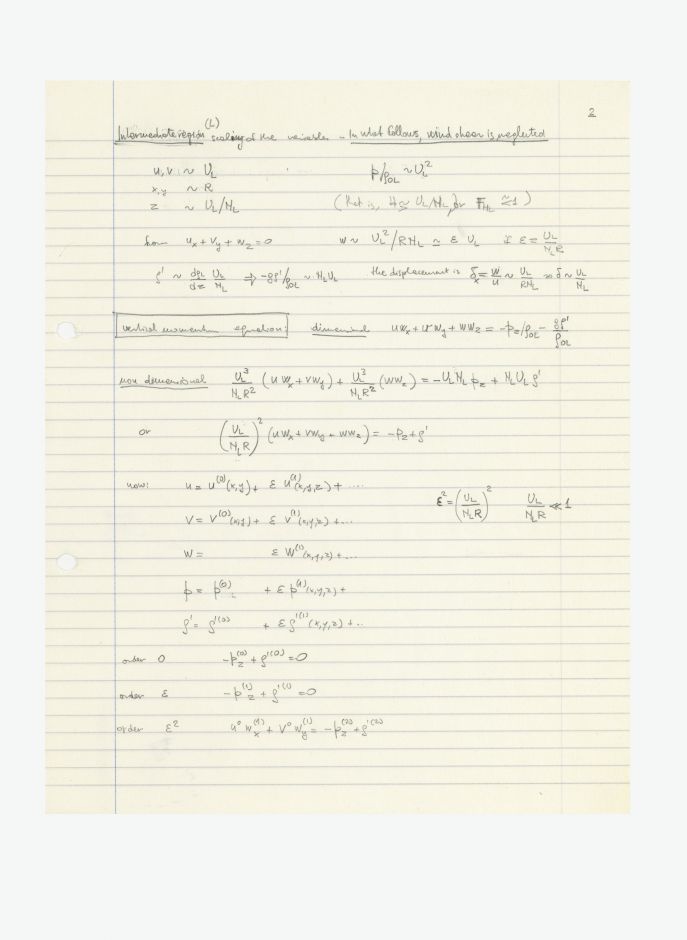 2
Intermediate region (L) scaling of the variables - In what follows, wind shear is neglected
u, v ~ U_L p/ρ_0L ~ U_L^2
x, y ~ R
z ~ U_L/N_L (that is, H ≃ U_L/N_L, or F_HL ≃ 1)
from u_x + v_y + w_z = 0 w ~ U_L^2/RN_L ≃ ε U_L if ε = U_L/N_L R
ρ' ~ dρ_L/dz U_L/N_L ⇒ -gρ'/ρ_0L ~ N_L U_L the displacement is δ_x = w/u ~ U_L/RN_L so δ ~ U_L/N_L
vertical momentum equation: dimensional uw_x + vw_y + ww_z = -p_z/ρ_0L - gρ'/ρ_0L
non dimensional U_L^3/N_L R^2 (uw_x + vw_y) + U_L^3/N_L R^2 (ww_z) = -U_L N_L p_z + N_L U_L ρ'
or (U_L/N_L R)^2 (uw_x + vw_y + ww_z) = -p_z + ρ'
now: u = u^(0)(x,y) + ε u^(1)(x,y,z) + ....
ε^2 = (U_L/N_L R)^2 U_L/N_L R ≪ 1
v = v^(0)(x,y) + ε v^(1)(x,y,z) + ...
w = ε w^(1)(x,y,z) + ...
p = p^(0) + ε p^(1)(x,y,z) +
ρ' = ρ'^(0) + ε ρ'^(1)(x,y,z) + ..
order 0 -p_z^(0) + ρ'^(0) = 0
order ε -p_z^(1) + ρ'^(1) = 0
order ε^2 u^0 w_x^(1) + v^0 w_y^(1) = -p_z^(2) + ρ'^(2)